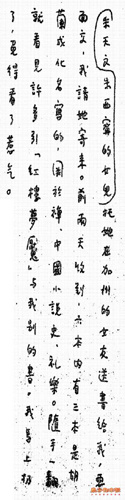 朱天文(朱西甯的女兒)託她在加州的女友送書給我,要
面交,我請她寄來。前兩天收到六本內有三本是胡
蘭成化名寫的,關於禪、中國小說史、礼樂。隨手一翻
就看見許多引「紅樓夢魘」与我別的書。我馬上扔
了,免得看了惹氣。